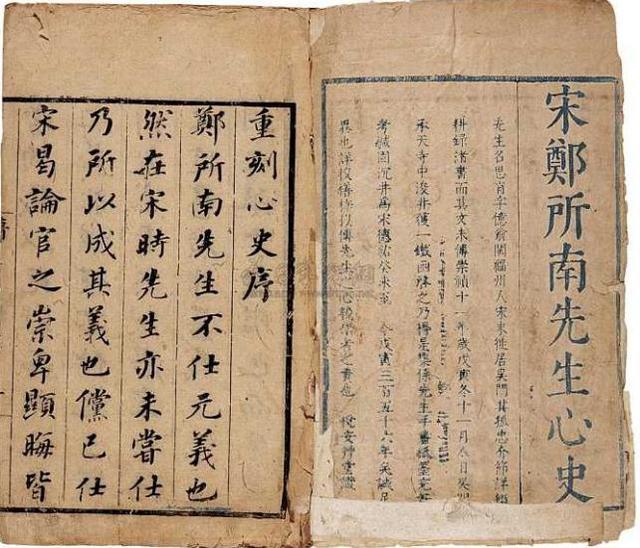 宋鄭所南先生心史
先生名思肖字億翁閩福州人宋末徙居吳門其孤忠介節詳
耕録諸書而其文未傳崇禎十一年歲戊寅冬十一月八日吳
承天寺中浚井獲一鐵函啓之乃得是集係先生手書紙墨完好
考緘固沉井爲宋德祐癸未至今戊寅三百五十六年矣誠足
異也以傳先生之志
重刻心史序
鄭所南先生不仕元義也
然在宋時先生亦未嘗仕
乃所以成其義也儻已仕
宋曷論官之崇卑顯晦皆